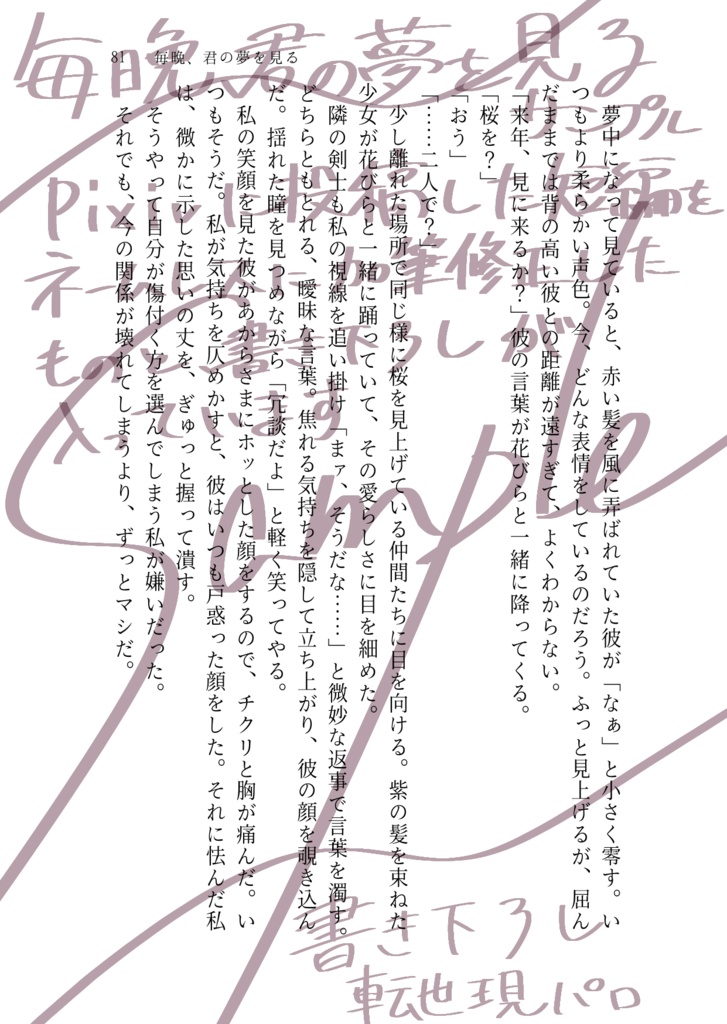 81 毎晩、君の夢を見る
夢中になって見ていると、赤い髪を風に弄ばれていた彼が「なぁ」と小さく零す。い
つもより柔らかい声色。今、どんな表情をしているのだろう。ふっと見上げるが、屈ん
だままでは背の高い彼との距離が遠すぎて、よくわからない。
「来年、見に来るか?」彼の言葉が花びらと一緒に降ってくる。
「桜を?」
「おう」
「……二人で?」
少し離れた場所で同じ様に桜を見上げている仲間たちに目を向ける。紫の髪を束ねた
少女が花びらと一緒に踊っていて、その愛らしさに目を細めた。
隣の剣士も私の視線を追い掛け「まァ、そうだな……」と微妙な返事で言葉を濁す。
どちらともとれる、曖昧な言葉。焦れる気持ちを隠して立ち上がり、彼の顔を覗き込ん
だ。揺れた瞳を見つめながら「冗談だよ」と軽く笑ってやる。
私の笑顔を見た彼があからさまにホッとした顔をするので、チクリと胸が痛んだ。い
つもそうだ。私が気持ちを仄めかすと、彼はいつも戸惑った顔をした。それに怯んだ私
は、微かに示した思いの丈を、ぎゅっと握って潰す。
そうやって自分が傷付く方を選んでしまう私が嫌いだった。
それでも、今の関係が壊れてしまうより、ずっとマシだ。
毎晩、君の夢を見る
サンプル
pixivに投稿した短編を
ネームレスに加筆修正した
ものと書き下ろしが
入っています
Sample
書き下ろし
転生現パロ